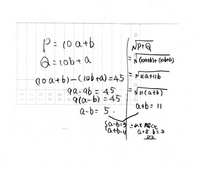 P = 10a+b
Q = 10b+a
(10a+b)-(10b+a)=45
9a-9b=45
9(a-b)=45
a-b=5
√P+Q
=√(10a+b)+(10b+a)
=√11a+11b
=√11(a+b)
a+b=11
{a-b=5
a+b=11
a=8 b=3